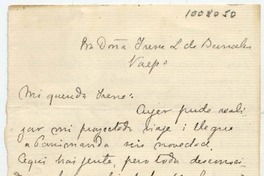 1002050
Sra Doña Irene L. de Bernales
Valpo
Mi querida Irene:
Ayer pude reali
zar mi proyectado viaje i llegué
a sin novedad.
Aquí hai jente, pero toda